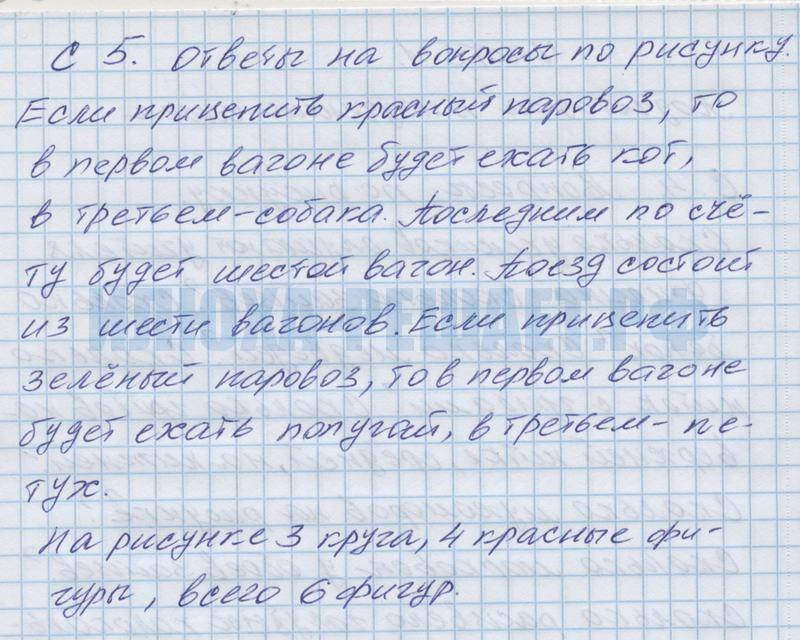 С 5. Ответы на вопросы по рисунку.
Если прицепить красный паровоз, то
в первом вагоне будет ехать кот,
в третьем-собака. Последним по счё-
ту будет шестой вагон. Поезд состоит
из шести вагонов. Если прицепить
зелёный паровоз, то в первом вагоне
будет ехать попугай, в третьем- пе-
тух.
На рисунке 3 круга, 4 красные фи-
гуры, всего 6 фигур.